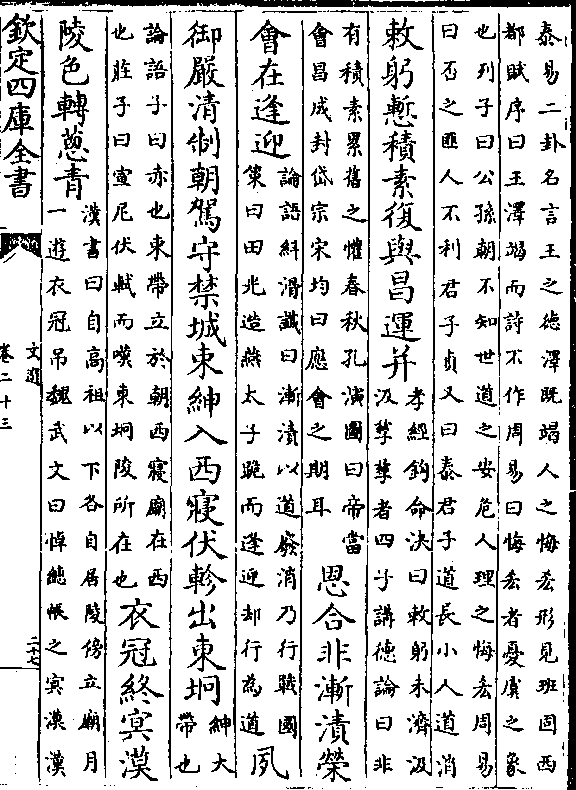 泰易二卦名言王之徳澤既竭人之悔吝形見班固西
都賦序曰王澤竭而詩不作周易曰悔吝者憂虞之象
也列子曰公孫朝不知世道之安危人理之悔吝周易
曰否之匪人不利君子貞又曰泰君子道長小人道消
敕躬慙積素復與昌運并
孝經鉤命決曰敕躬未濟汲
汲孳孳者四子講徳論曰非
有積素累舊之懽春秋孔演圖曰帝當
會昌成封岱宗宋均曰應會之期耳
恩合非漸漬榮
會在逢迎
論語糾滑讖曰漸漬以道廢消乃行戰國
策曰田光造燕太子跪而逢迎却行為道
夙
御嚴清制朝駕守禁城束紳入西寢伏軫出東坰
紳大
帶也
論語子曰赤也束帶立於朝西寢廟在西
也莊子曰宣尼伏軾而嘆東坰陵所在也
衣冠終冥漠
陵邑轉葱青
漢書曰自高祖以下各自居陵傍立廟月
一遊衣冠弔魏武文曰悼繐帳之冥漠漢
欽定四庫全書
文選
卷二十三
二十七